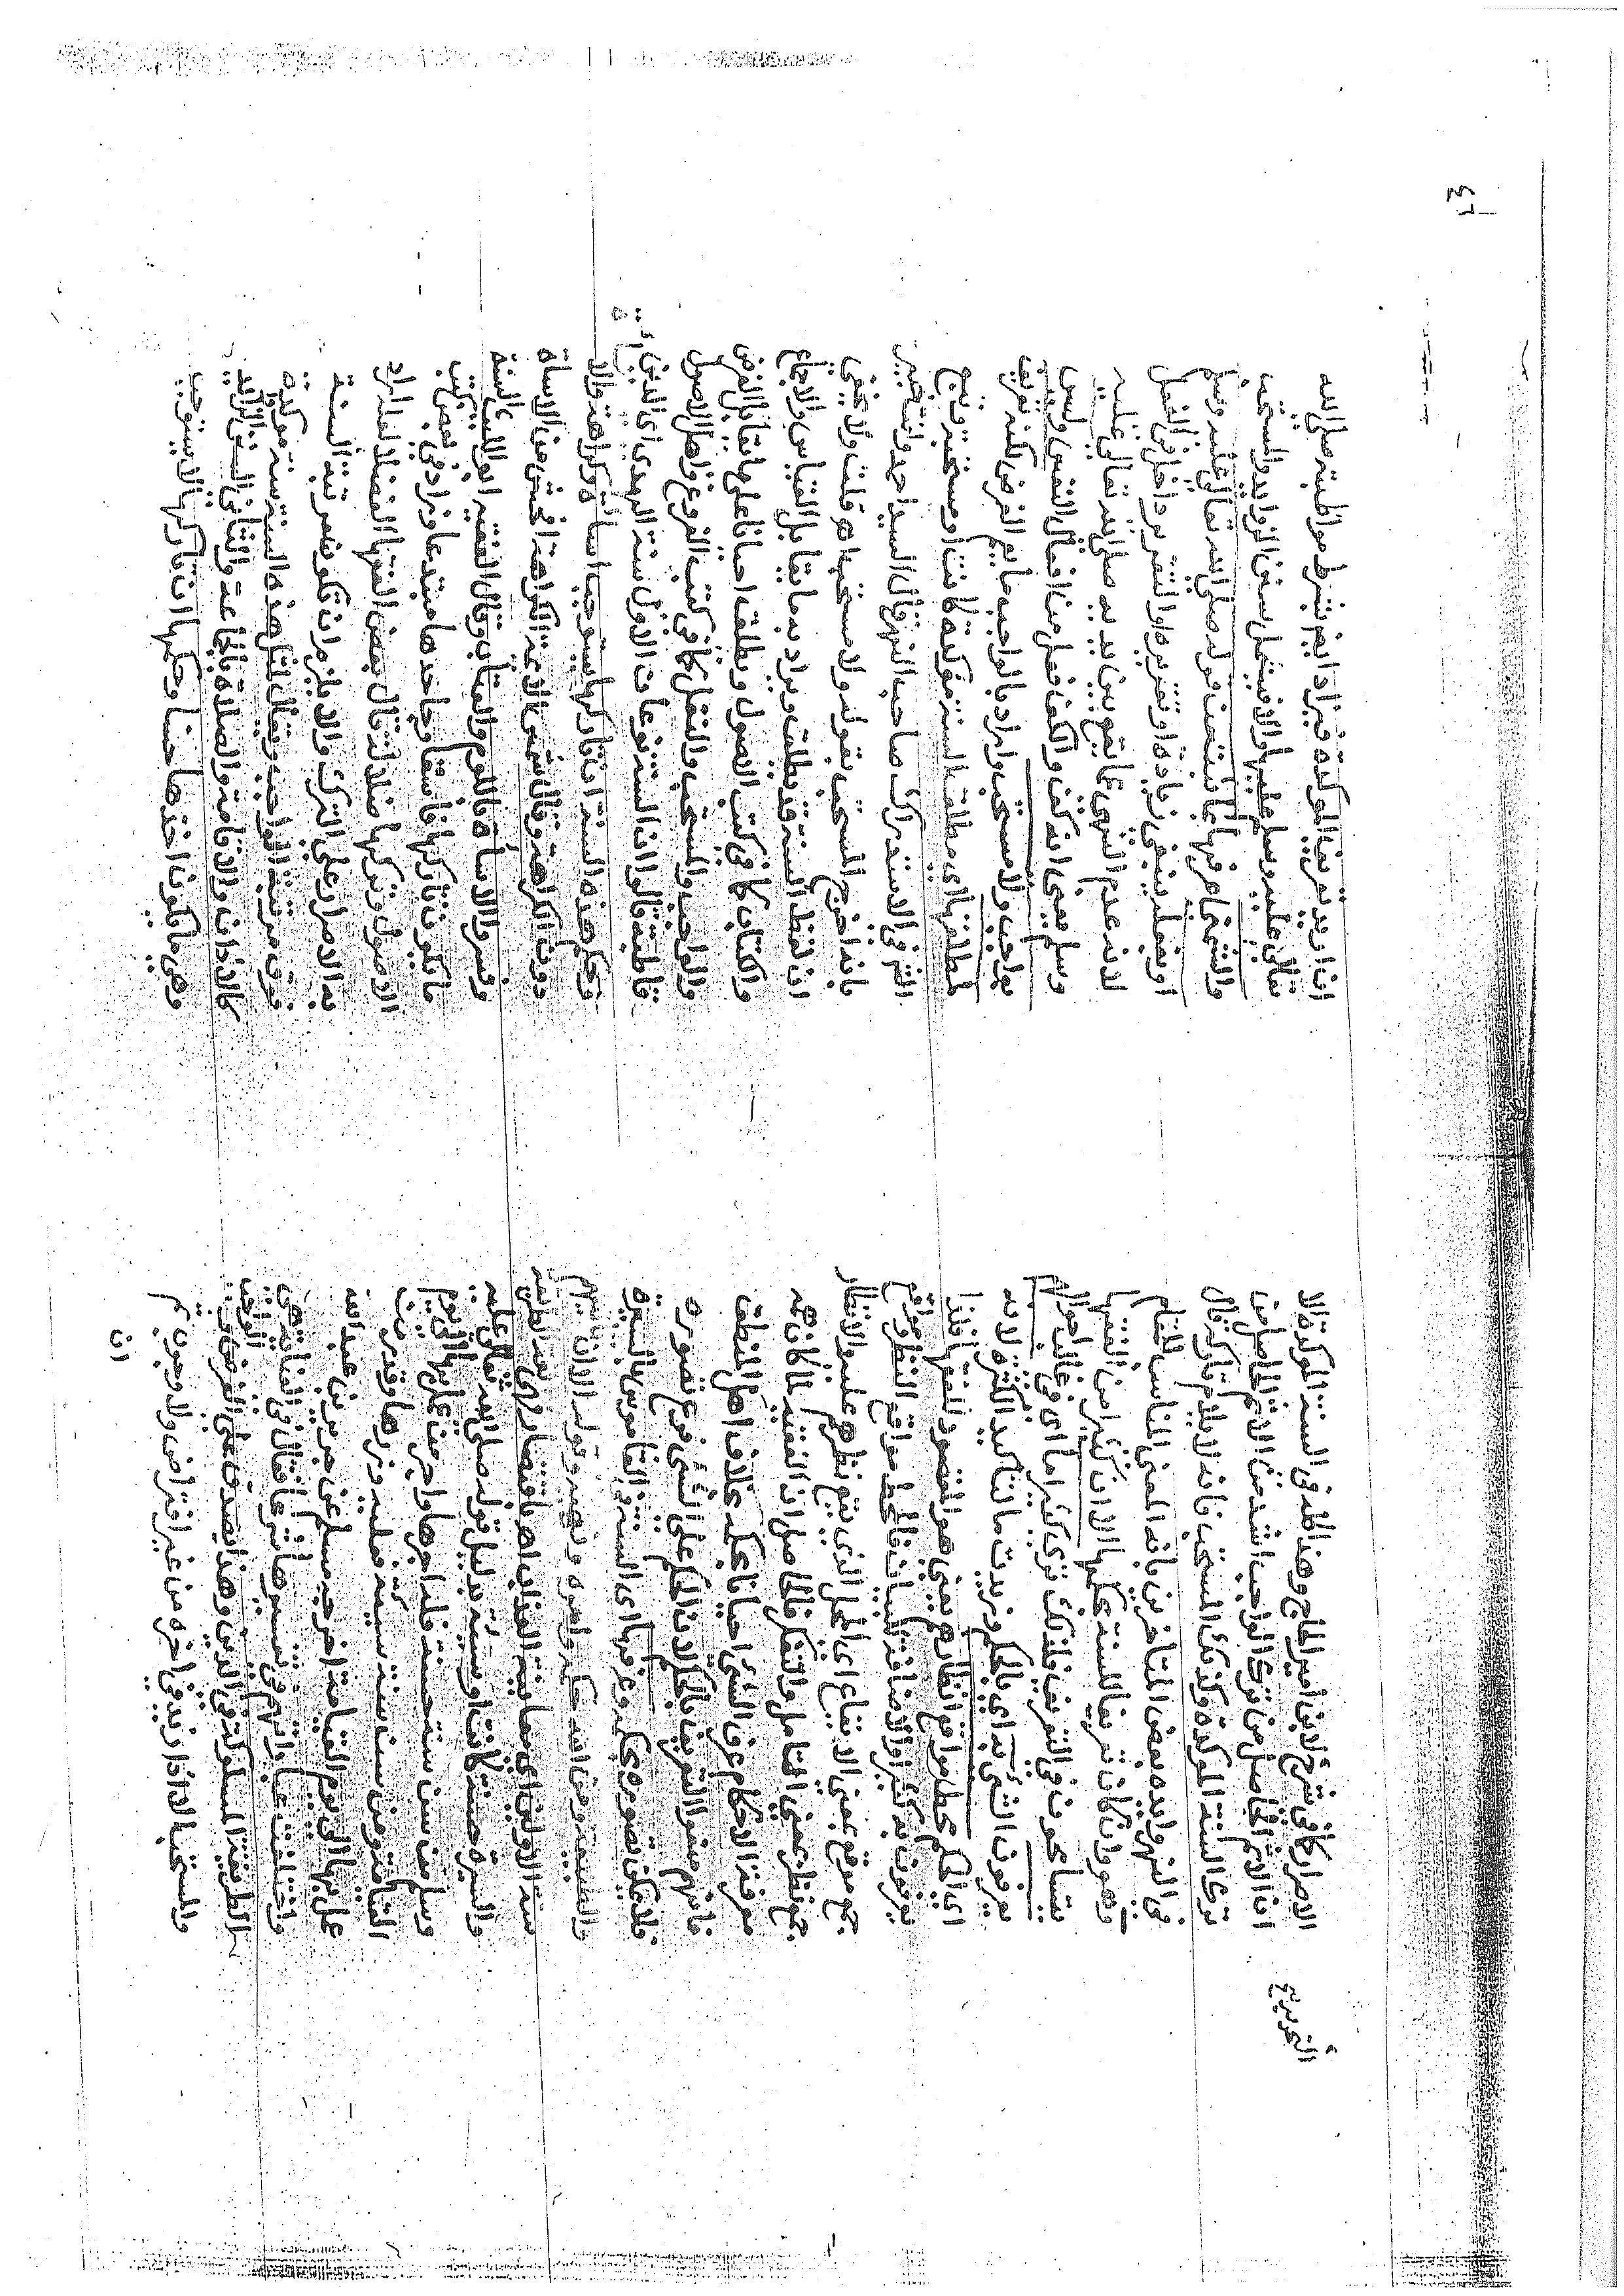 الاصرار كما في شرح لابن امير الحاج وهذا اظهر في السنة المؤكدة لا
التحريرية
ان الاثم الحاصل من ترك الواجب اشد من الاثم الحاصل من
ترك السنة المؤكدة وكذا المستحب فانه لا يلام تاركه قال
في النهر وايده بعض المتاخرين بانه المعنى المناسب للمقام
وهو وان كان تعريفا للسنة بحكمها الا ان كثيرا من الفقها
يتسامحون في التعريف فلذلك ترى كثيرا ما اي في غالب احوالهم
يعرفون الشئ به اي بالحكم وزيدت ما لتاكيد الكثرة لانه
اي الحكم محط مواقع انظارهم يعني هو المقصود للفقها فلذا
يعرفون به كثيرا والاضافة بيانية فالمحط مواقع النظر ومواقع
جمع موقع بمعنى الايقاع اي المحل الذي يقع نظرهم عليه والانظار
جمع نظر بمعنى التامل والتفكر فالحاصل ان الفقيه لما كان همه
معرفة الاحكام عرف الشئ احيانا بحكمه بخلاف اهل المنطق
فانهم منعوا التعريف بالحكم لان الحكم على الشئ فرع تصوره
فلا يمكن تصوره بحكمه وعرفها اي السنة في القاموس بالسيرة
والطبيعة ومن الله حكمه وامره ونهيه وقوله الا ان تاتيهم
سنة الاولين اي معاينة العذاب اه باقتصار وهي لغة الطريقة
والسيرة حسنة كانت او سيئة بدليل قوله صلى الله تعالى عليه
وسلم من سن سنة حسنة فله اجرها واجر من عمل بها الى يوم
القيامة ومن سن سنة سيئة فعليه وزرها ووزر من
عمل بها الى يوم القيامة اخرجه مسلم عن جرير بن عبد الله
واختلفت عباراتهم في تفسيرها شرعا فقال في العناية هي
الطريقة المسلوكة في الدين وهذا يصدق على الفرض والواجب
والمستحب الا اذا زيد في اخره من غير افتراض ولا وجوب ثم
ان
٢٣
ان اريد تعريف المؤكدة فيزاد ايضا بشرط مواظبته صلى الله
تعالى عليه وسلم عليها والا فيشمل سنن الزوايد والمستحب
والشمني عرفها بما ثبت من قوله صلى الله تعالى عليه وسلم
او بفعله ينبغي زيادة او تقريره والتقرير داخل في الفعل
لانه عدم النهي عما يقع بين يديه صلى الله تعالى عليه
وسلم يعني انه كف والكف فعل من افعال النفس وليس
بواجب ولا مستحب واراد بالواجب ما يعم الفرض لكنه تعريف
لمطلقها اي مطلق السنة مؤكدة كانت او مستحبة وتبع
الشارح في الاستدراك صاحب النهر قال السيد احمد وانت خبير
بانه اخرج المستحب بقوله ولا مستحب اه قلت ولا يخفى
ان لفظ السنة قد يطلق ويراد به ما يقابل القياس والاجماع
والكتاب كما في كتب الاصول ويطلق احيانا على ما يقابل الفرض
والواجب والمستحب والنفل كما في كتب الفروع واهل الاصول
قاطبة قالوا ان السنة نوعان الاول سنة الهدى اي الدين
وحكم هذه السنة ان تاركها يستوجب اساءة وكراهة والا
دون الكراهة وقال شمس الائمة الكراهة افحش من الاساءة
وفسروا الاساءة باللوم والعتاب وقال الفقيه ابو الليث السنة
ما يكون تاركها فاسقا وجاحدها مبتدعا وزاد في بعض كتب
الاصول وتركها ضلالة قال بعض الفقها الفضلا لعل المراد
به الاصرار على الترك والا يلزم ان تكون مرتبة السنة
فوق مرتبة الواجب ويقال لمثل هذه السنة سنة مؤكدة
كالاذان والاقامة والصلاة بالجماعة والثاني السنن الزايدة
وهي ما يكون اخذها حسنا وحكمها ان تاركها لا يستوجب